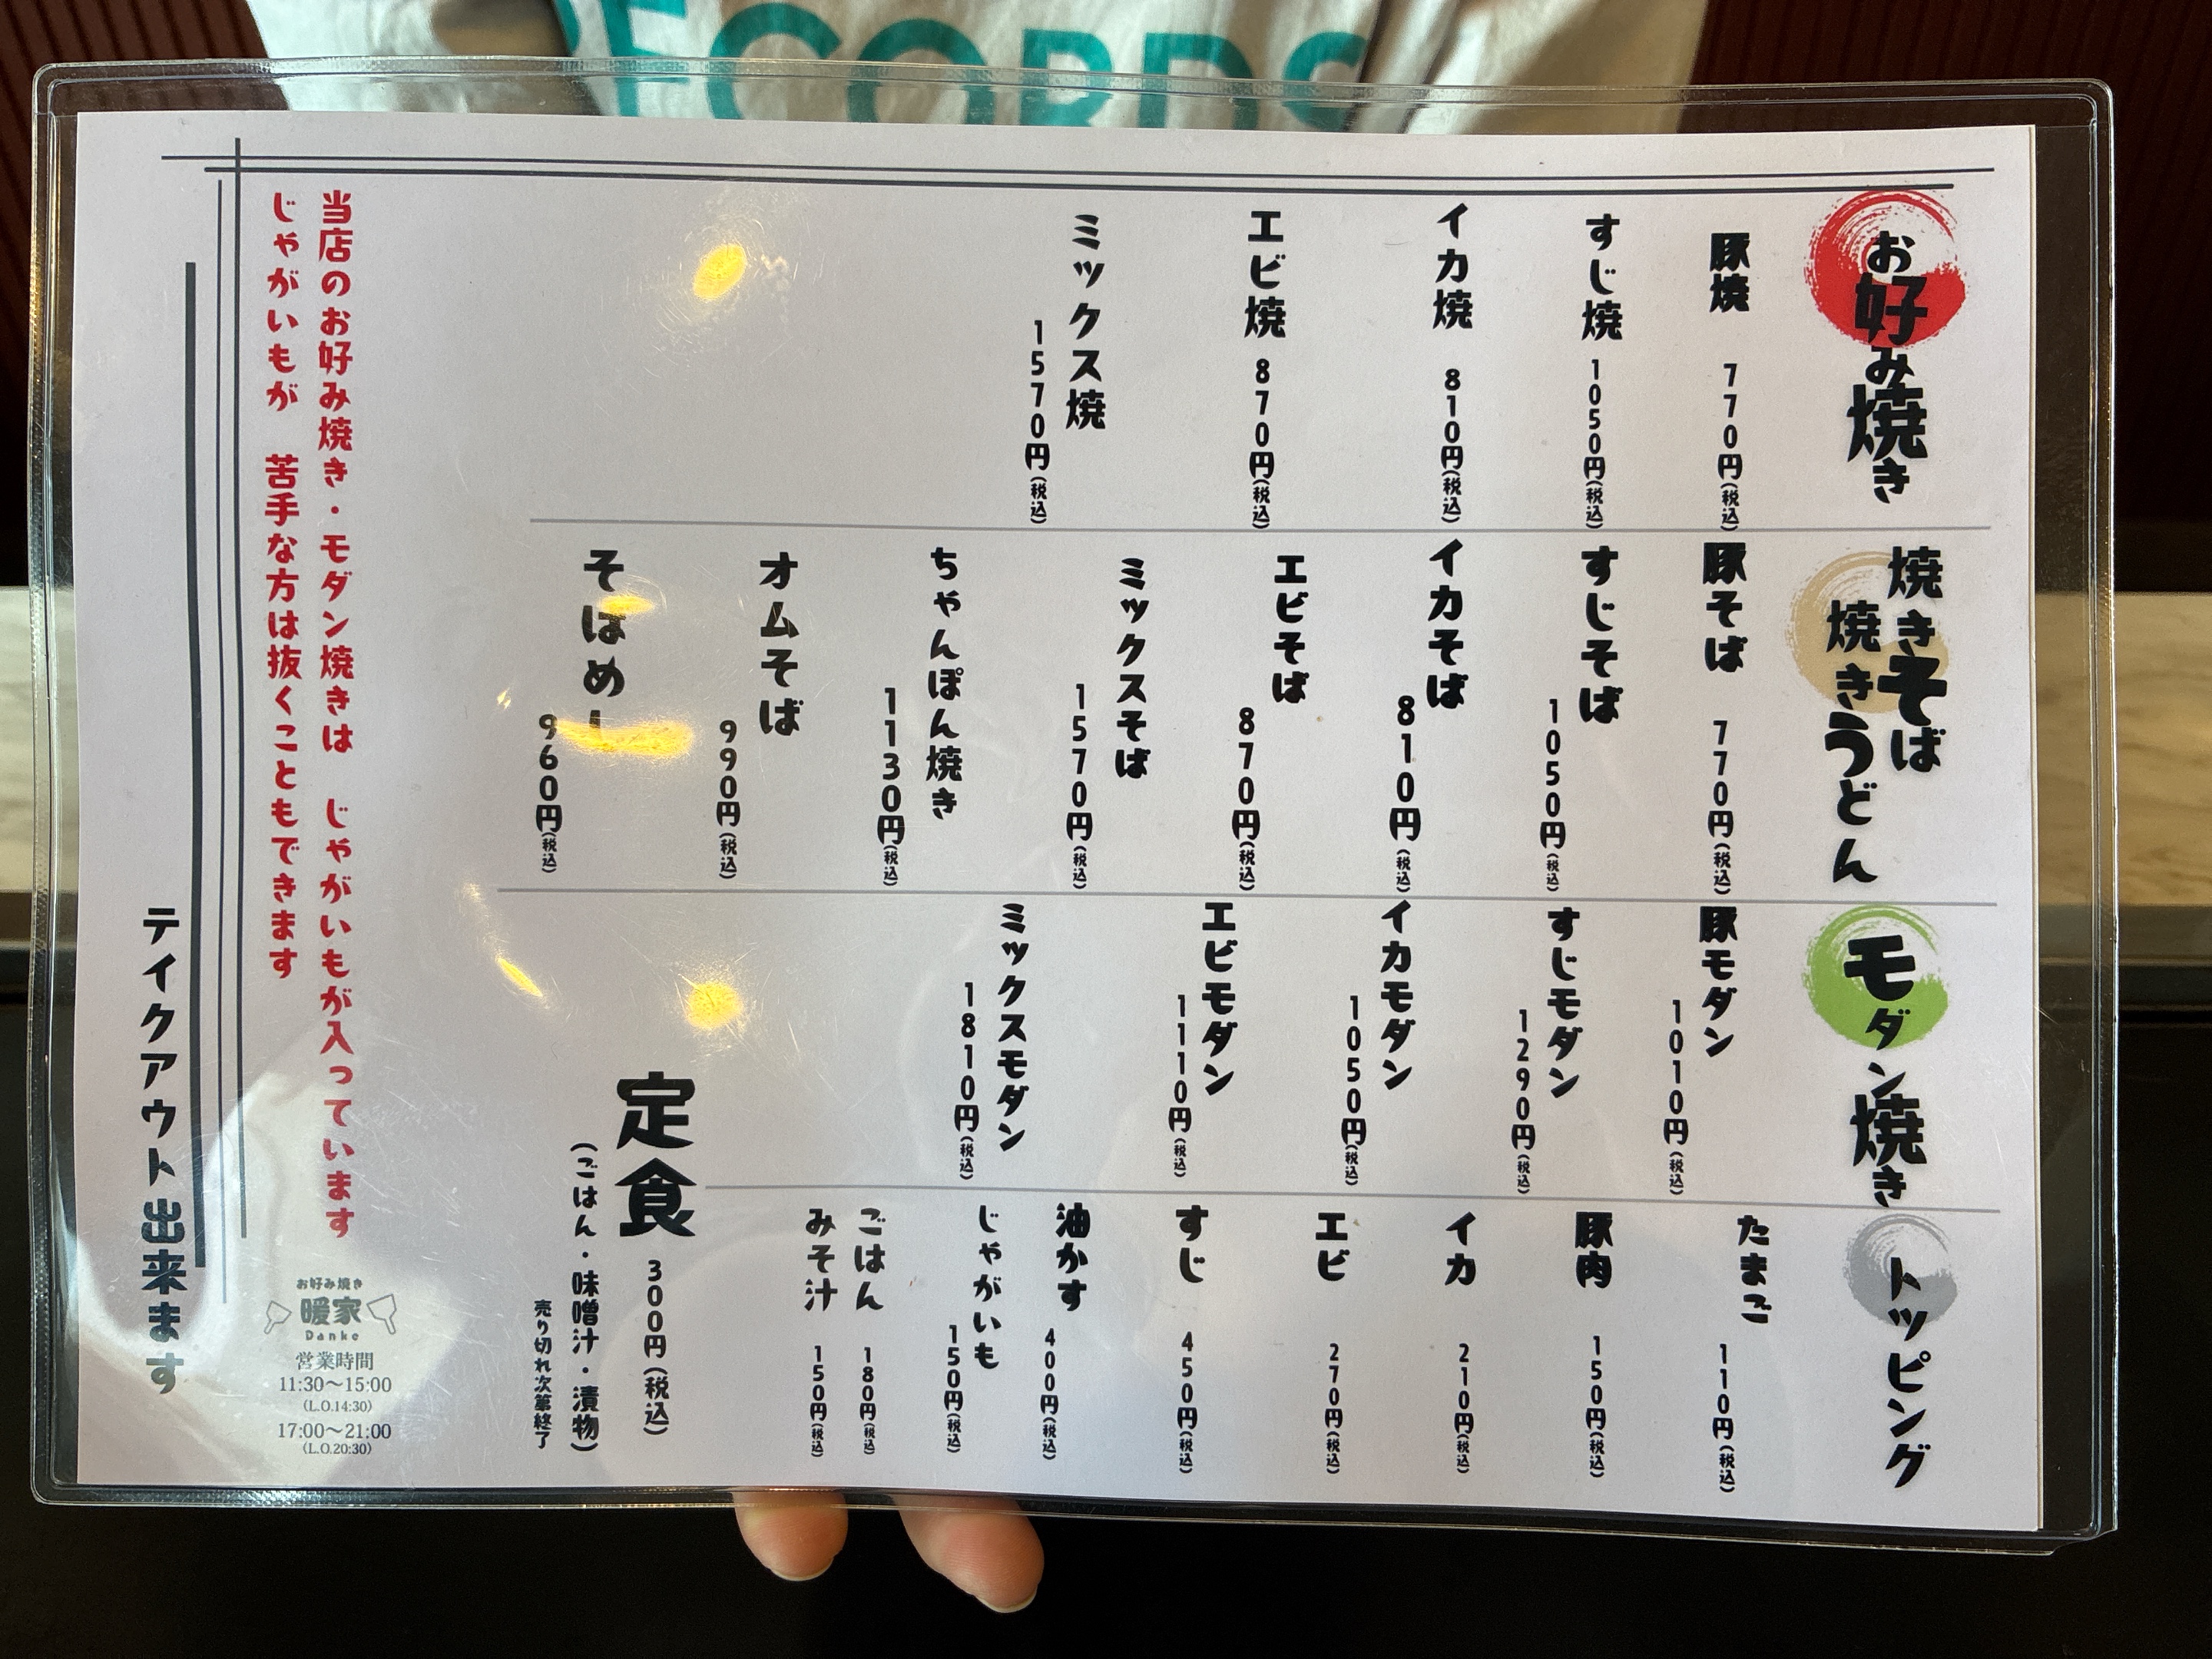 お好み焼き
豚焼 770円(税込)
すじ焼 1050円(税込)
イカ焼 810円(税込)
エビ焼 870円(税込)
ミックス焼
1570円(税込)
焼きそば
焼きうどん
豚そば 770円(税込)
すじそば
1050円(税込)
イカそば
810円(税込)
エビそば
870円(税込)
ミックスそば
1570円(税込)
ちゃんぽん焼き
1130円(税込)
オムそば
990円(税込)
そばめし
960円(税込)
モダン焼き
豚モダン
1010円(税込)
すじモダン
1290円(税込)
イカモダン
1050円(税込)
エビモダン
1110円(税込)
ミックスモダン
1810円(税込)
トッピング
たまご
110円(税込)
豚肉 150円(税込)
イカ 210円(税込)
エビ 270円(税込)
すじ 450円(税込)
油かす
400円(税込)
じゃがいも
150円(税込)
ごはん 180円(税込)
みそ汁 150円(税込)
定食 300円(税込)
(ごはん・味噌汁・漬物)
売り切れ次第終了
当店のお好み焼き・モダン焼きは じゃがいもが入っています
じゃがいもが 苦手な方は抜くこともできます
お好み焼き
暖家
Danke
営業時間
11:30〜15:00
(L.O.14:30)
17:00〜21:00
(L.O.20:30)
テイクアウト出来ます
RECORDS